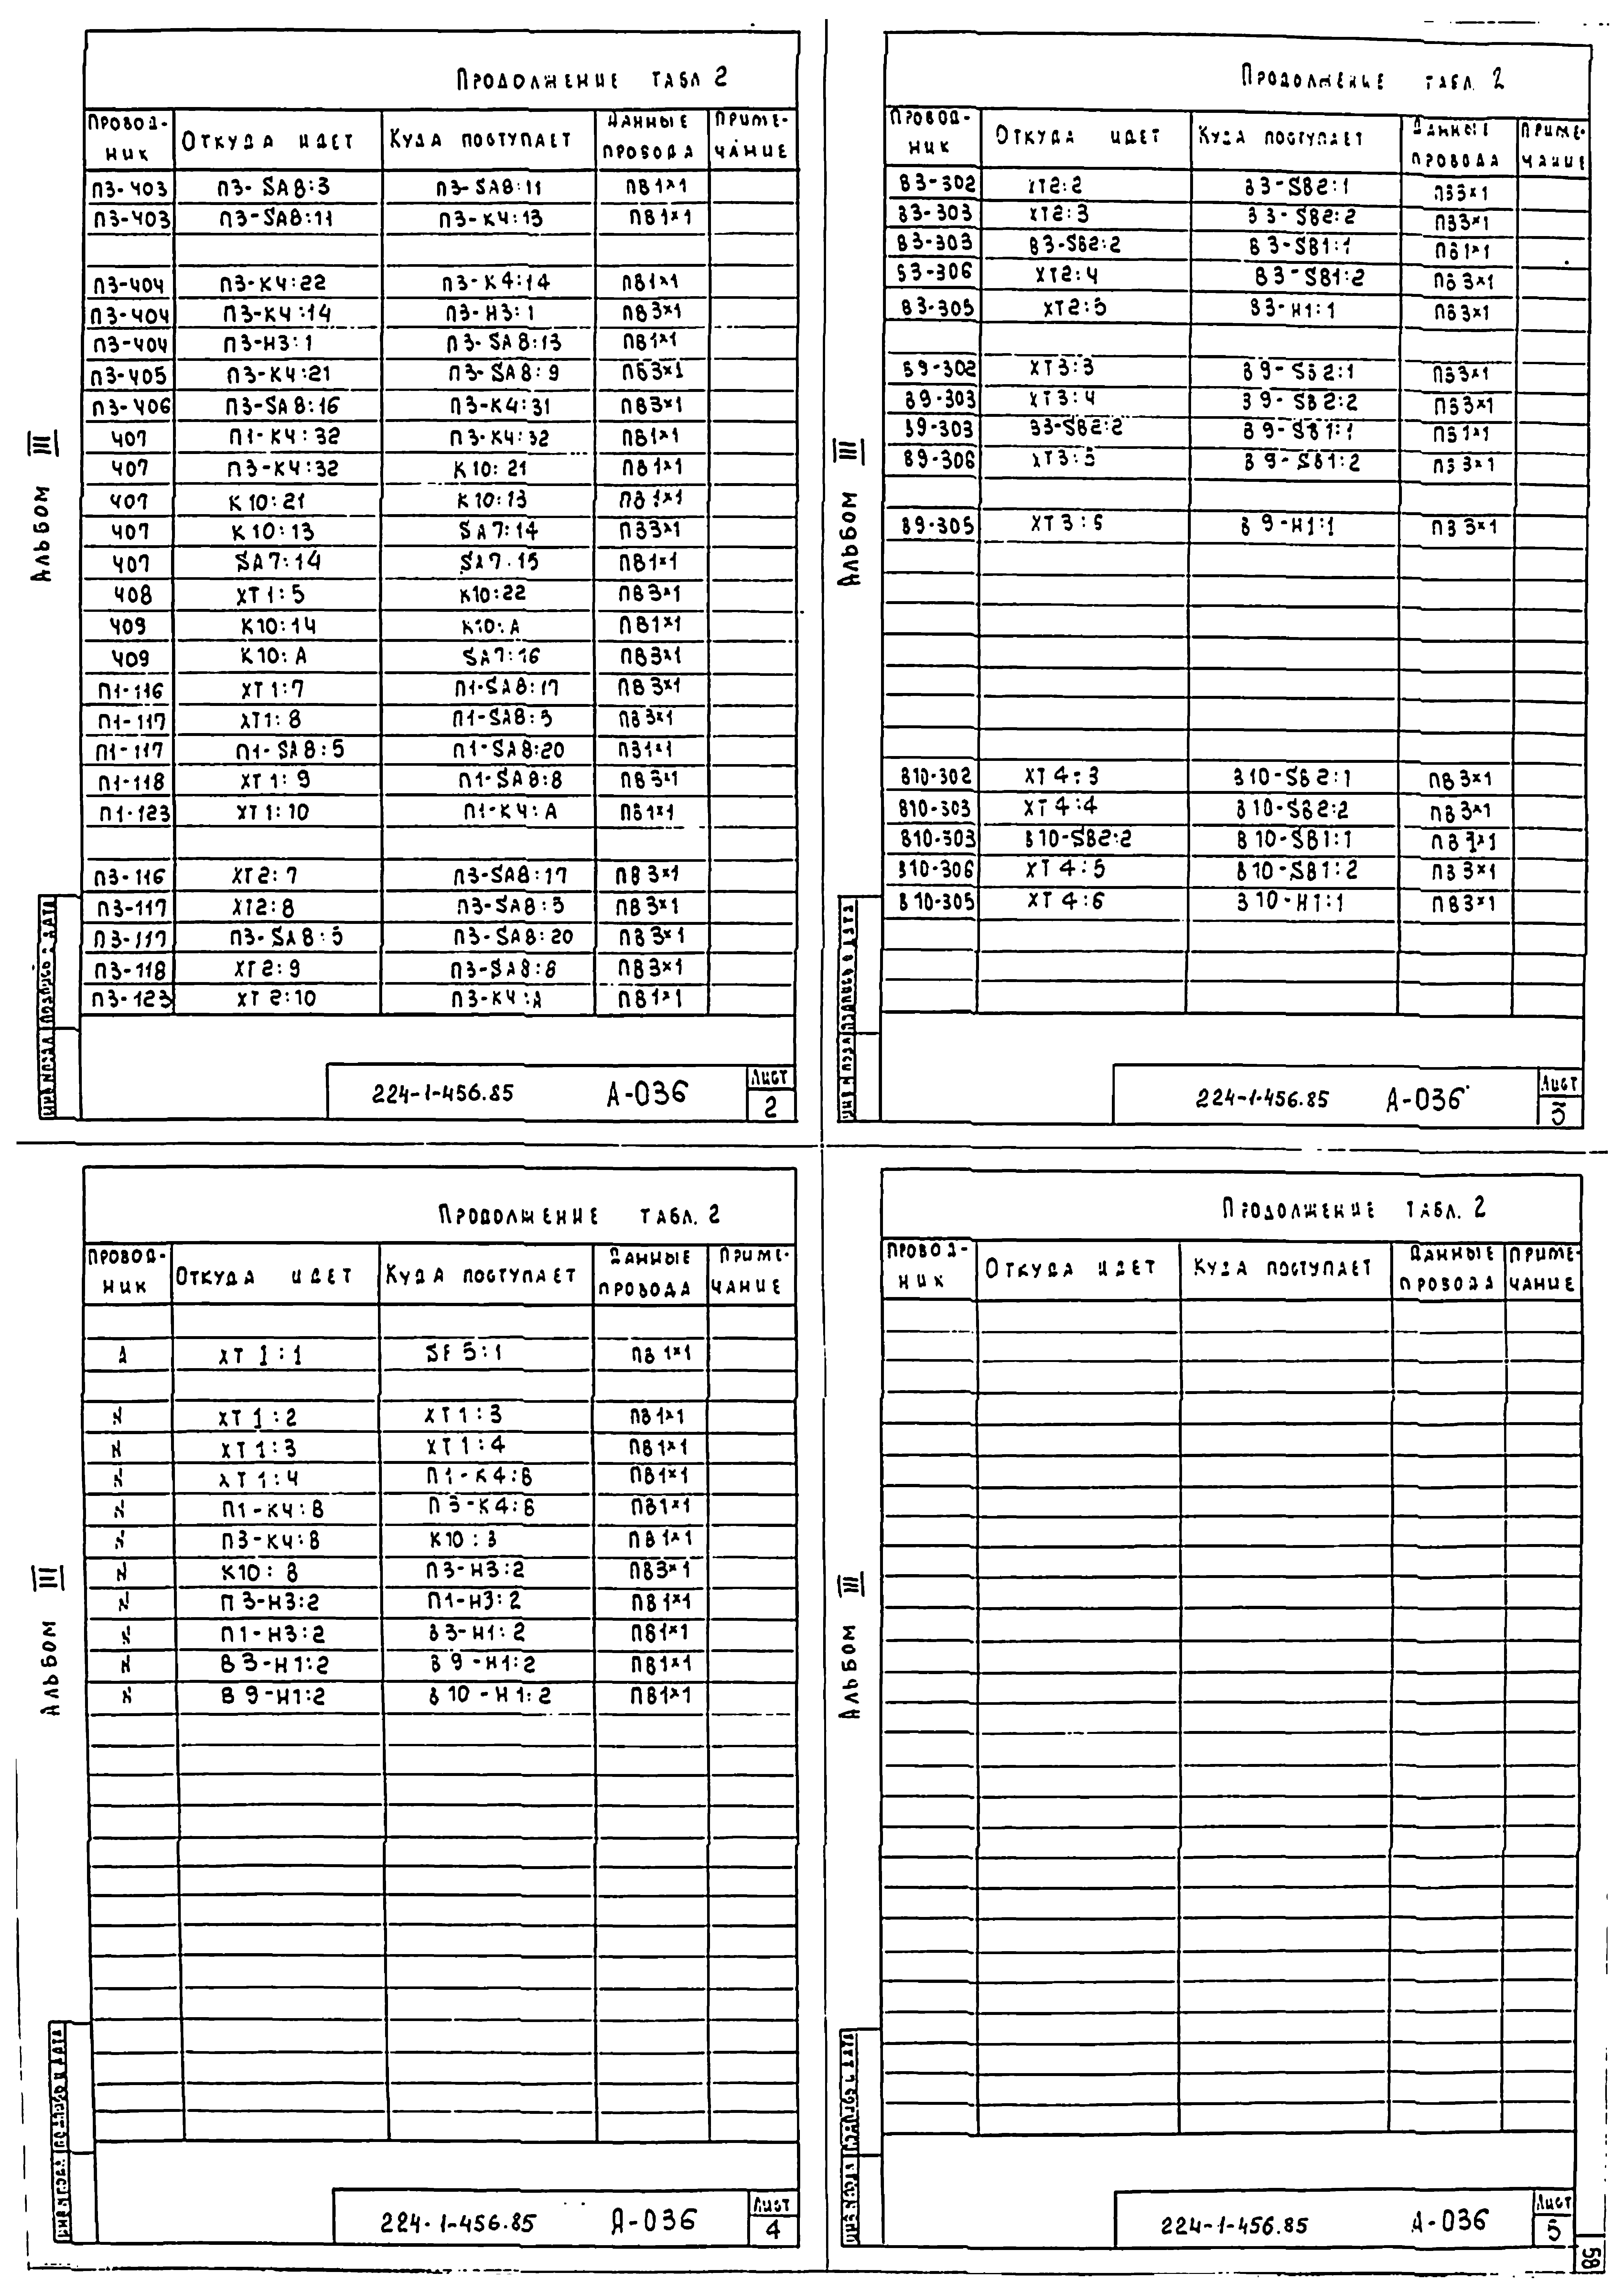 Продолжение табл 2
Проводник Откуда идет Куда поступает Данные провода Примечание
П3-403 П3-SA8:3 П3-SA8:11 ПВ1×1
П3-403 П3-SA8:11 П3-К4:13 ПВ1×1
П3-404 П3-К4:22 П3-К4:14 ПВ1×1
П3-404 П3-К4:14 П3-Н3:1 ПВ3×1
П3-404 П3-Н3:1 П3-SA8:13 ПВ1×1
П3-405 П3-К4:21 П3-SA8:9 ПВ3×1
П3-406 П3-SA8:16 П3-К4:31 ПВ3×1
407 П1-К4:32 П3-К4:32 ПВ1×1
407 П3-К4:32 К10:21 ПВ1×1
407 К10:21 К10:13 ПВ1×1
407 К10:13 SA7:14 ПВ3×1
407 SA7:14 SA7.15 ПВ1×1
408 ХТ1:5 К10:22 ПВ3×1
409 К10:14 К10:А ПВ1×1
409 К10:А SA7:16 ПВ3×1
П1-116 ХТ1:7 П1-SA8:17 ПВ3×1
П1-117 ХТ1:8 П1-SA8:5 ПВ3×1
П1-117 П1-SA8:5 П1-SA8:20 ПВ1×1
П1-118 ХТ1:9 П1-SA8:8 ПВ3×1
П1-123 ХТ1:10 П1-К4:А ПВ1×1
П3-116 ХТ2:7 П3-SA8:17 ПВ3×1
П3-117 ХТ2:8 П3-SA8:5 ПВ3×1
П3-117 П3-SA8:5 П3-SA8:20 ПВ3×1
П3-118 ХТ2:9 П3-SA8:8 ПВ3×1
П3-123 ХТ2:10 П3-К4:А ПВ1×1
Альбом III
224-1-456.85 А-036 Лист 2
Продолжение табл. 2
Проводник Откуда идет Куда поступает Данные провода Примечание
В3-302 ХТ2:2 В3-SB2:1 ПВ3×1
В3-303 ХТ2:3 В3-SB2:2 ПВ3×1
В3-303 В3-SB2:2 В3-SB1:1 ПВ1×1
В3-306 ХТ2:4 В3-SB1:2 ПВ3×1
В3-305 ХТ2:5 В3-Н1:1 ПВ3×1
В9-302 ХТ3:3 В9-SB2:1 ПВ3×1
В9-303 ХТ3:4 В9-SB2:2 ПВ3×1
В9-303 В3-SB2:2 В9-SB1:1 ПВ1×1
В9-306 ХТ3:5 В9-SB1:2 ПВ3×1
В9-305 ХТ3:6 В9-Н1:1 ПВ3×1
В10-302 ХТ4:3 В10-SB2:1 ПВ3×1
В10-303 ХТ4:4 В10-SB2:2 ПВ3×1
В10-303 В10-SB2:2 В10-SB1:1 ПВ1×1
В10-306 ХТ4:5 В10-SB1:2 ПВ3×1
В10-305 ХТ4:6 В10-Н1:1 ПВ3×1
Альбом III
224-1-456.85 А-036 Лист 3
Продолжение табл. 2
Проводник Откуда идет Куда поступает Данные провода Примечание
А ХТ1:1 SF5:1 ПВ1×1
N ХТ1:2 ХТ1:3 ПВ1×1
N ХТ1:3 ХТ1:4 ПВ1×1
N ХТ1:4 П1-К4:В ПВ1×1
N П1-К4:В П3-К4:В ПВ1×1
N П3-К4:В К10:В ПВ1×1
N К10:В П3-Н3:2 ПВ3×1
N П3-Н3:2 П1-Н3:2 ПВ1×1
N П1-Н3:2 В3-Н1:2 ПВ1×1
N В3-Н1:2 В9-Н1:2 ПВ1×1
N В9-Н1:2 В10-Н1:2 ПВ1×1
Альбом III
Подпись и дата
224-1-456.85 А-036 Лист 4
Продолжение табл. 2
Проводник Откуда идет Куда поступает Данные провода Примечание
Альбом III
224-1-456.85 А-036 Лист 5
58